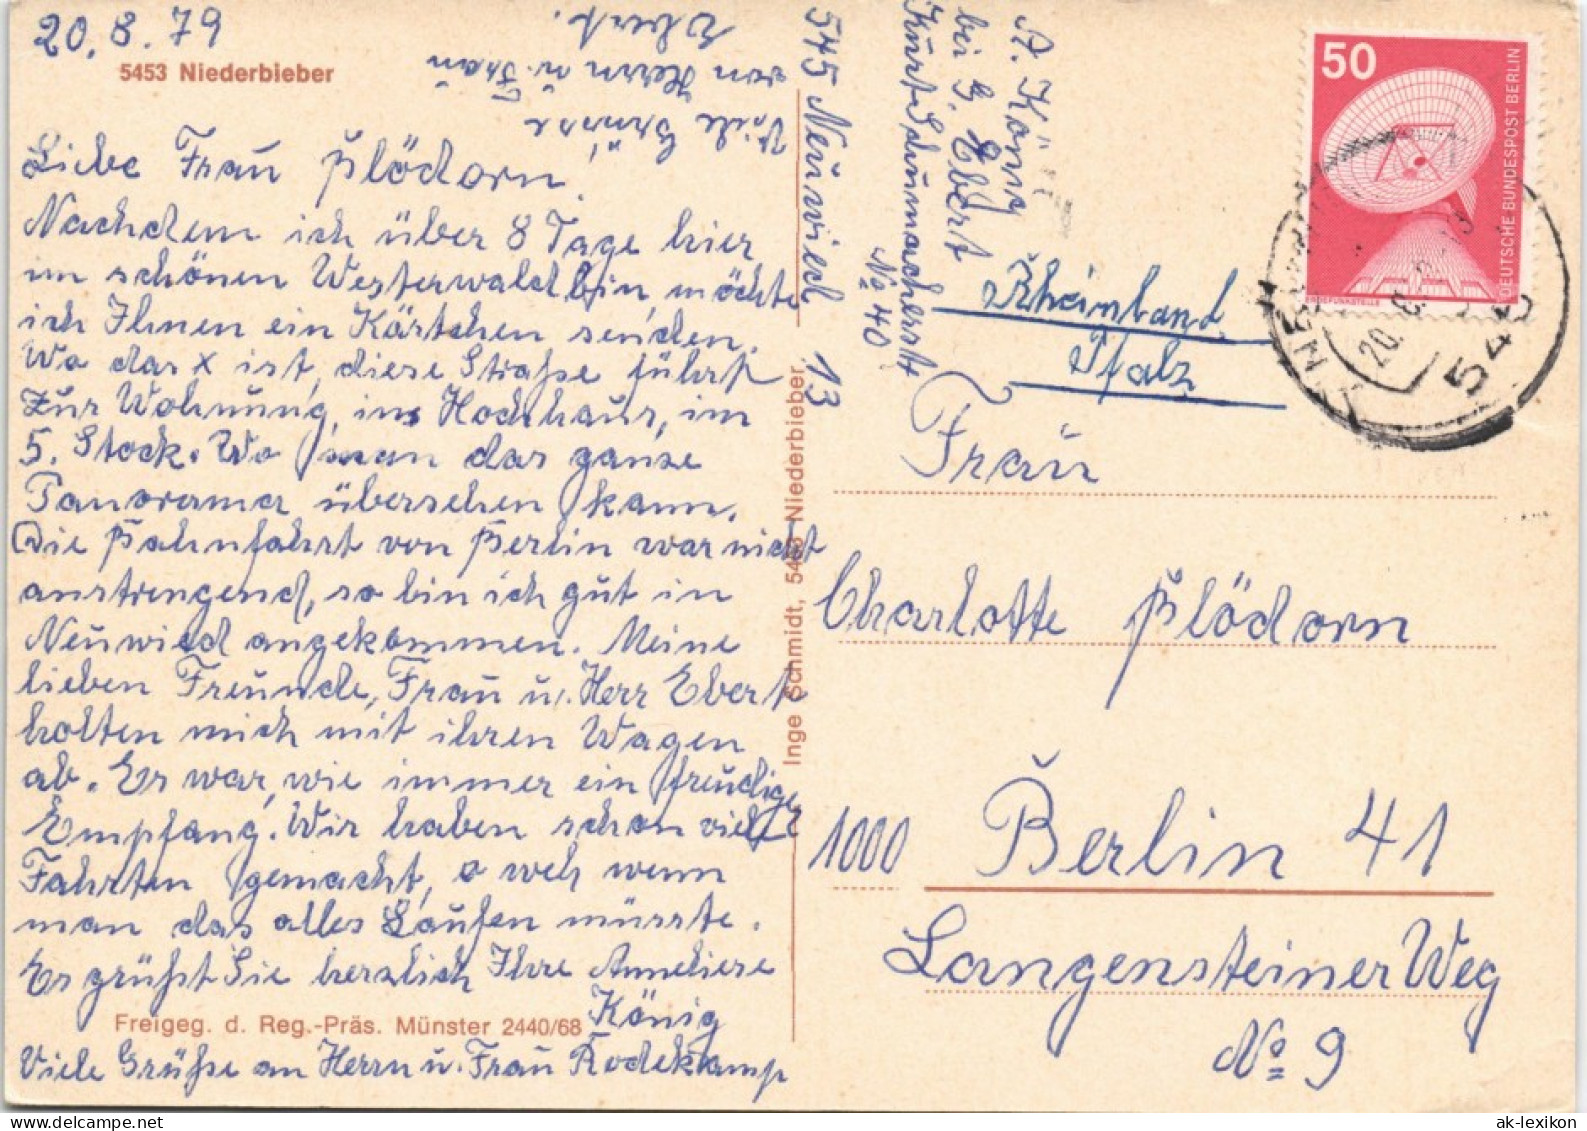 20.8.79
5453 Niederbieber
Viele Grüsse
von Herrn u. Frau
Ebert.
Liebe Frau Plödorn.
Nachdem ich über 8 Tage hier
im schönen Westerwald bin möchte
ich Ihnen ein Kärtchen senden.
Wo das x ist, diese Straße führt
zur Wohnung, ins Hochhaus, im
5. Stock. Wo man das ganze
Panorama übersehen kann.
Die Bahnfahrt von Berlin war nicht
anstrengend, so bin ich gut in
Neuwied angekommen. Meine
lieben Freunde, Frau u. Herr Ebert
holten mich mit ihren Wagen
ab. Es war, wie immer ein freudiger
Empfang. Wir haben schon viele
Fahrten gemacht, o weh wenn
man das alles Laufen müsste.
Es grüßt Sie herzlich Ihre Anneliese
König
Freigeg. d. Reg.-Präs. Münster 2440/68
Viele Grüße an Herrn u. Frau Rodekamp
Inge Schmidt, 5453 Niederbieber
545 Neuwied 13
A. König
bei G. Ebert
Kurt Schumacherstr
No 40
Rheinland
Pfalz
50
DEUTSCHE BUNDESPOST BERLIN
ERDEFUNKSTELLE
20. 8.
545
Frau
Charlotte Plödorn
1000 Berlin 41
Langensteiner Weg
No 9
ak-lexikon.com